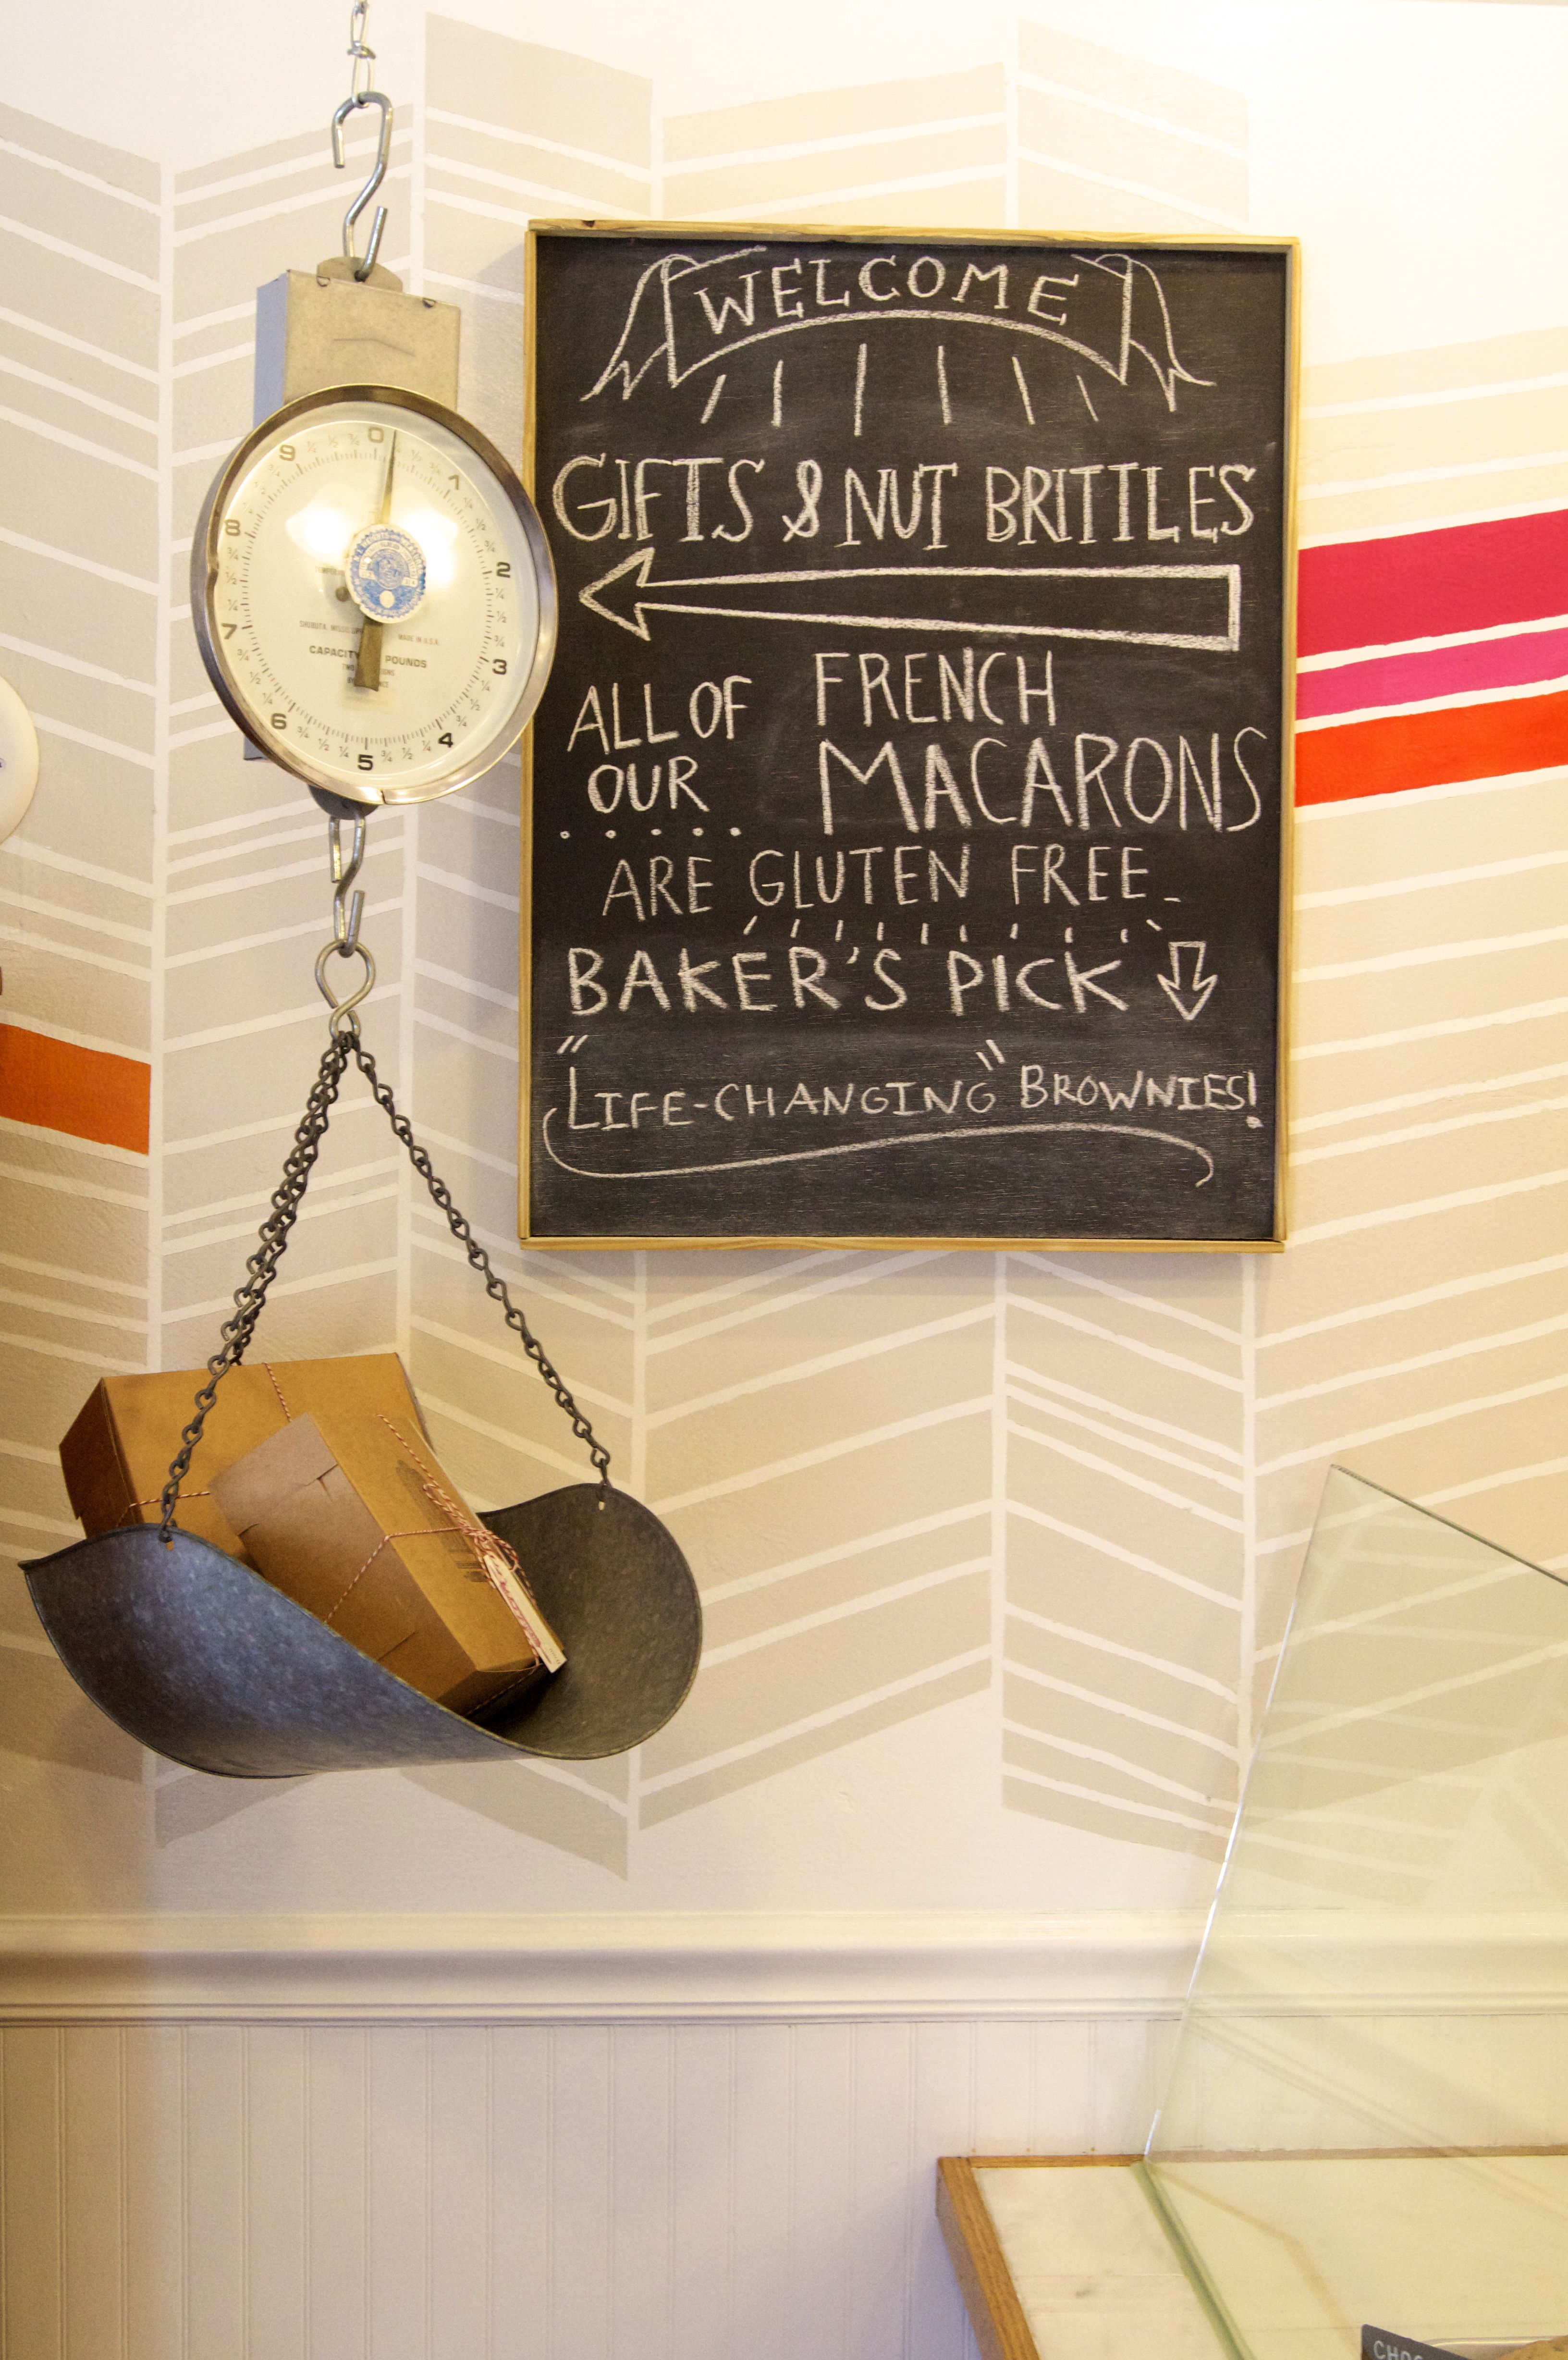 WELCOME
GIFTS & NUT BRITTLES
ALL OF OUR
FRENCH MACARONS
ARE GLUTEN FREE
BAKER'S PICK
"LIFE-CHANGING" BROWNIES!
0
1
2
3
4
5
6
7
8
9
MADE IN U.S.A.
CAPACITY
POUNDS